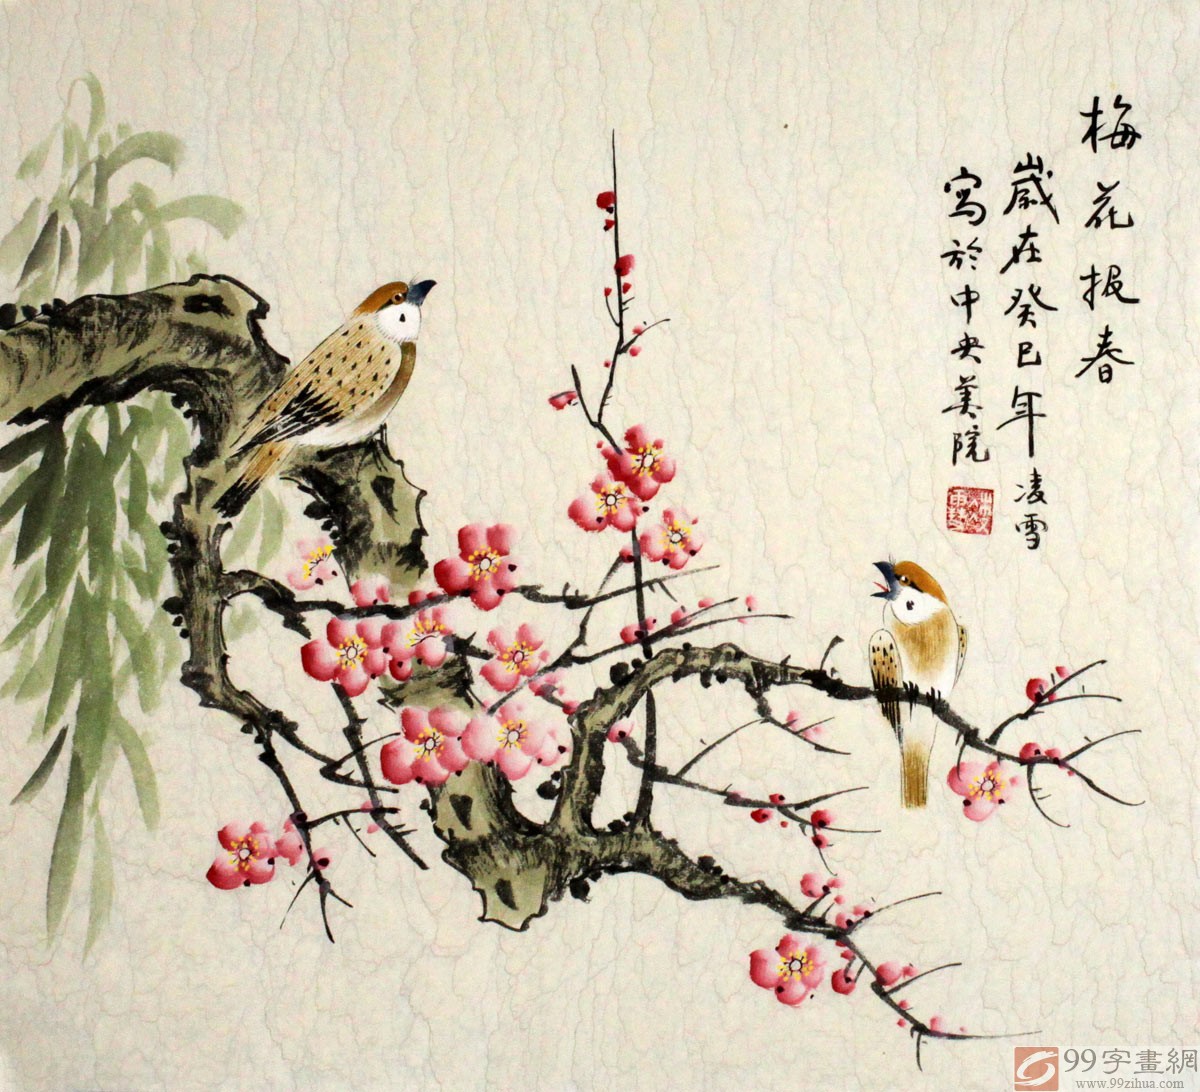 梅花报春
歲在癸巳年凌雪
寫於中央美院
99字畫網
www.99zihua.com